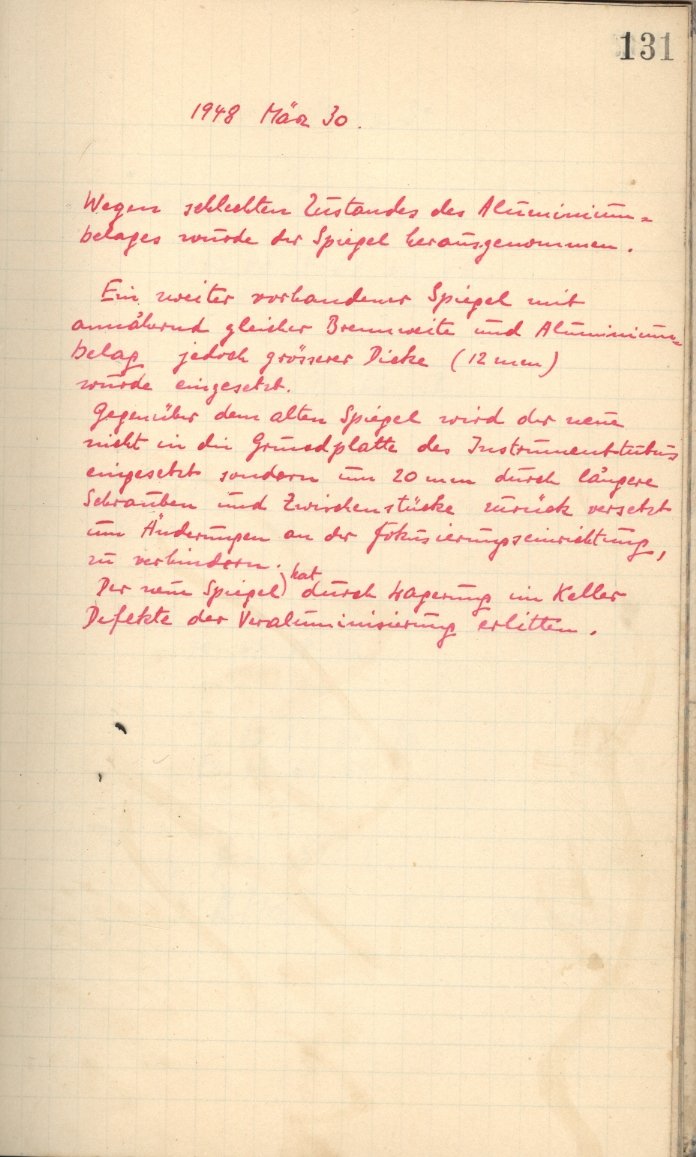 131
1948 März 30.
Wegen schlechten Zustandes des Aluminium=
belages wurde der Spiegel herausgenommen.
Ein zweiter vorhandener Spiegel mit
annähernd gleicher Brennweite und Aluminium=
belag jedoch grösserer Dicke (12 mm)
wurde eingesetzt.
Gegenüber dem alten Spiegel wird der neue
nicht in die Grundplatte des Instrumententubus
eingesetzt sondern um 20 mm durch längere
Schrauben und Zwischenstücke zurück versetzt
um Änderungen an der Fokusierungseinrichtung,
zu verhindern.
Der neue Spiegel hat durch Lagerung im Keller
Defekte der Veraluminisierung erlitten.